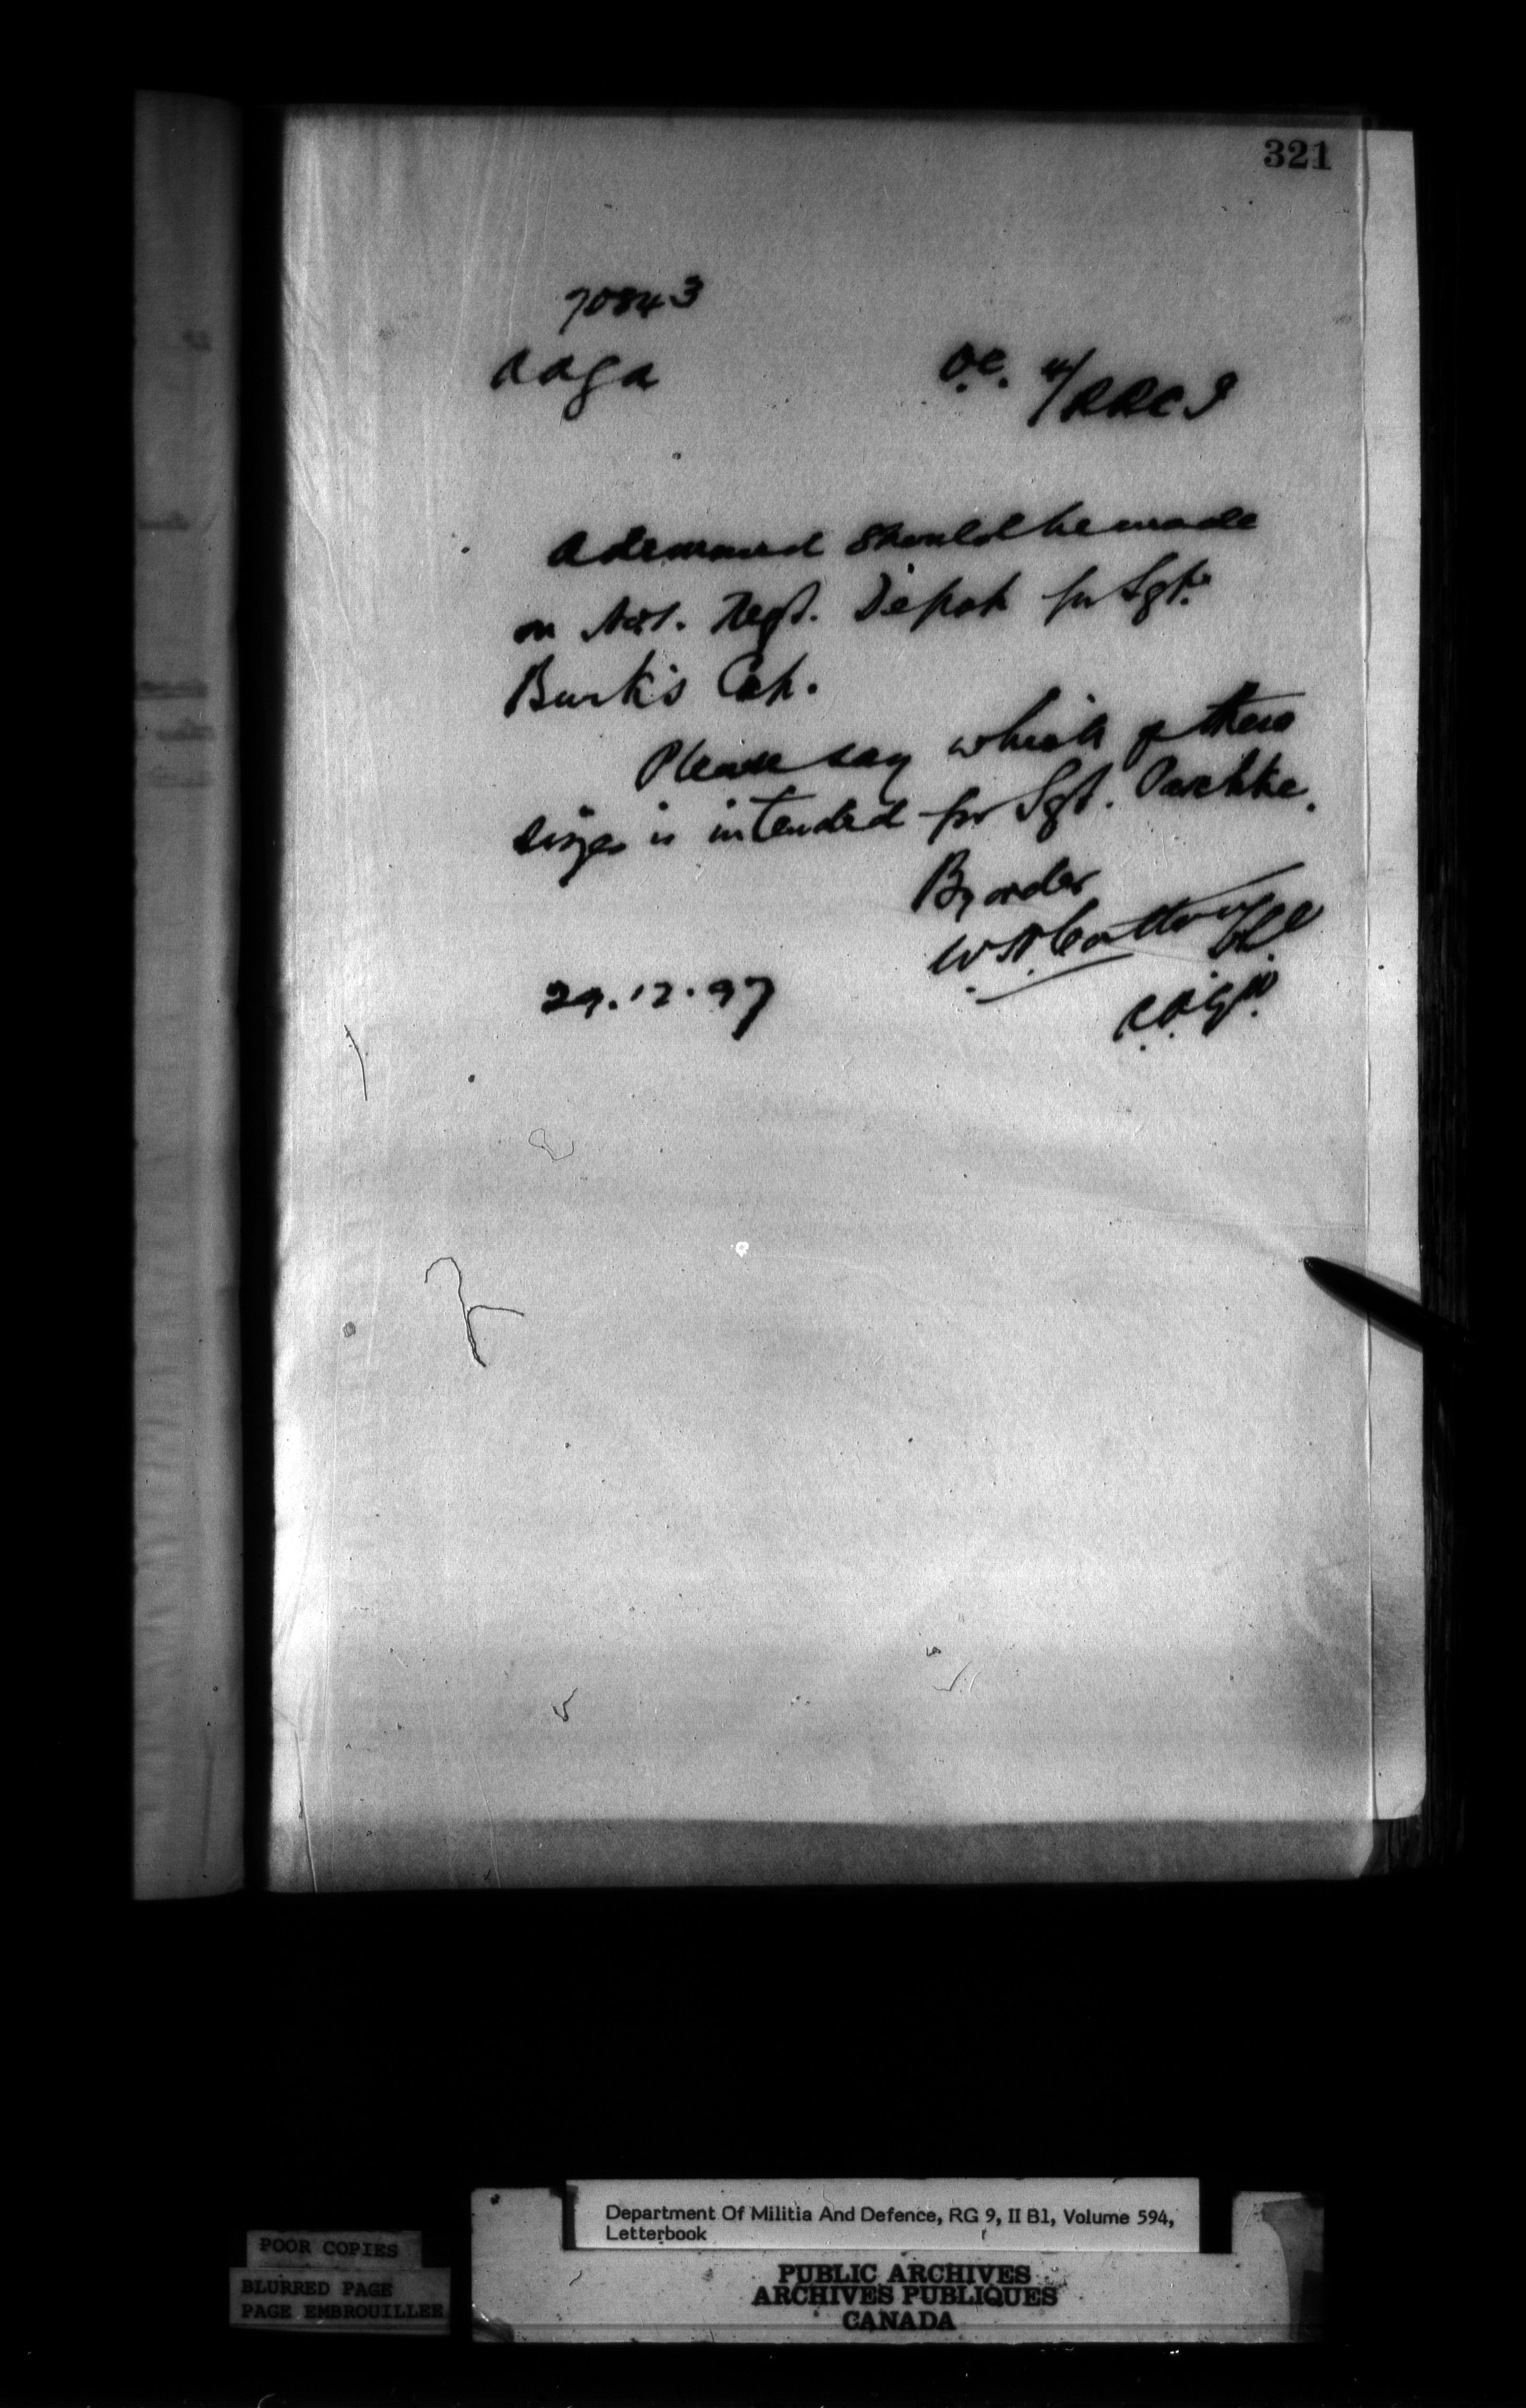 321
70843
AAGA
O.C. 4/RRCI
A demand should be made
on Regt. Depot for Sgt.
Burk's Cap.
Please say which of these
sizes is intended for Sgt. Paschke.
By order
29.12.97
Department Of Militia And Defence, RG 9, II B1, Volume 594,
Letterbook
POOR COPIES
BLURRED PAGE
PAGE EMBROUILLEE
PUBLIC ARCHIVES
ARCHIVES PUBLIQUES
CANADA